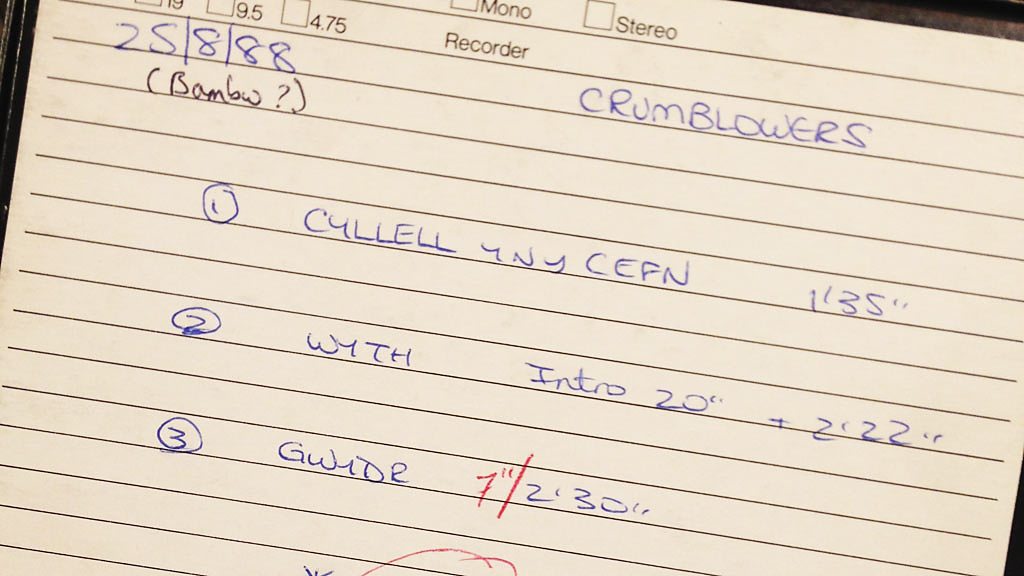 19 9.5 4.75 Mono Stereo
Recorder
25/8/88
(Bambw?)
CRUMBLOWERS
① CYLLELL YN Y CEFN 1'35"
② WYTH Intro 20" + 2'22"
③ GWYDR 7"/2'30"